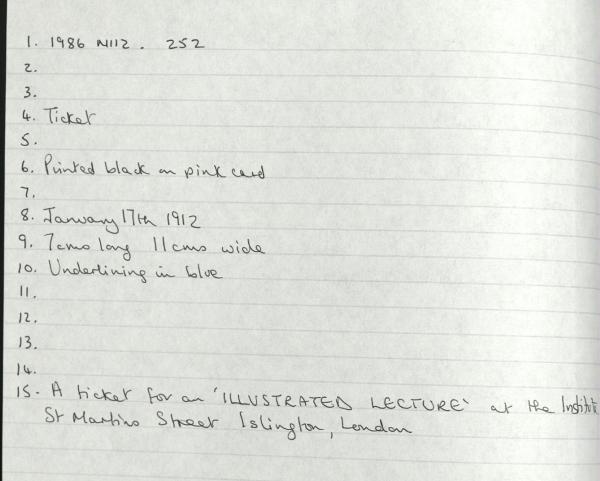 1. 1986 N112. 252
2.
3.
4. Ticket
5.
6. Printed black on pink card
7.
8. January 17th 1912
9. 7cms long 11cms wide
10. Underlining in blue
11.
12.
13.
14.
15. A ticket for an 'ILLUSTRATED LECTURE' at the
St Martins Street Islington, London